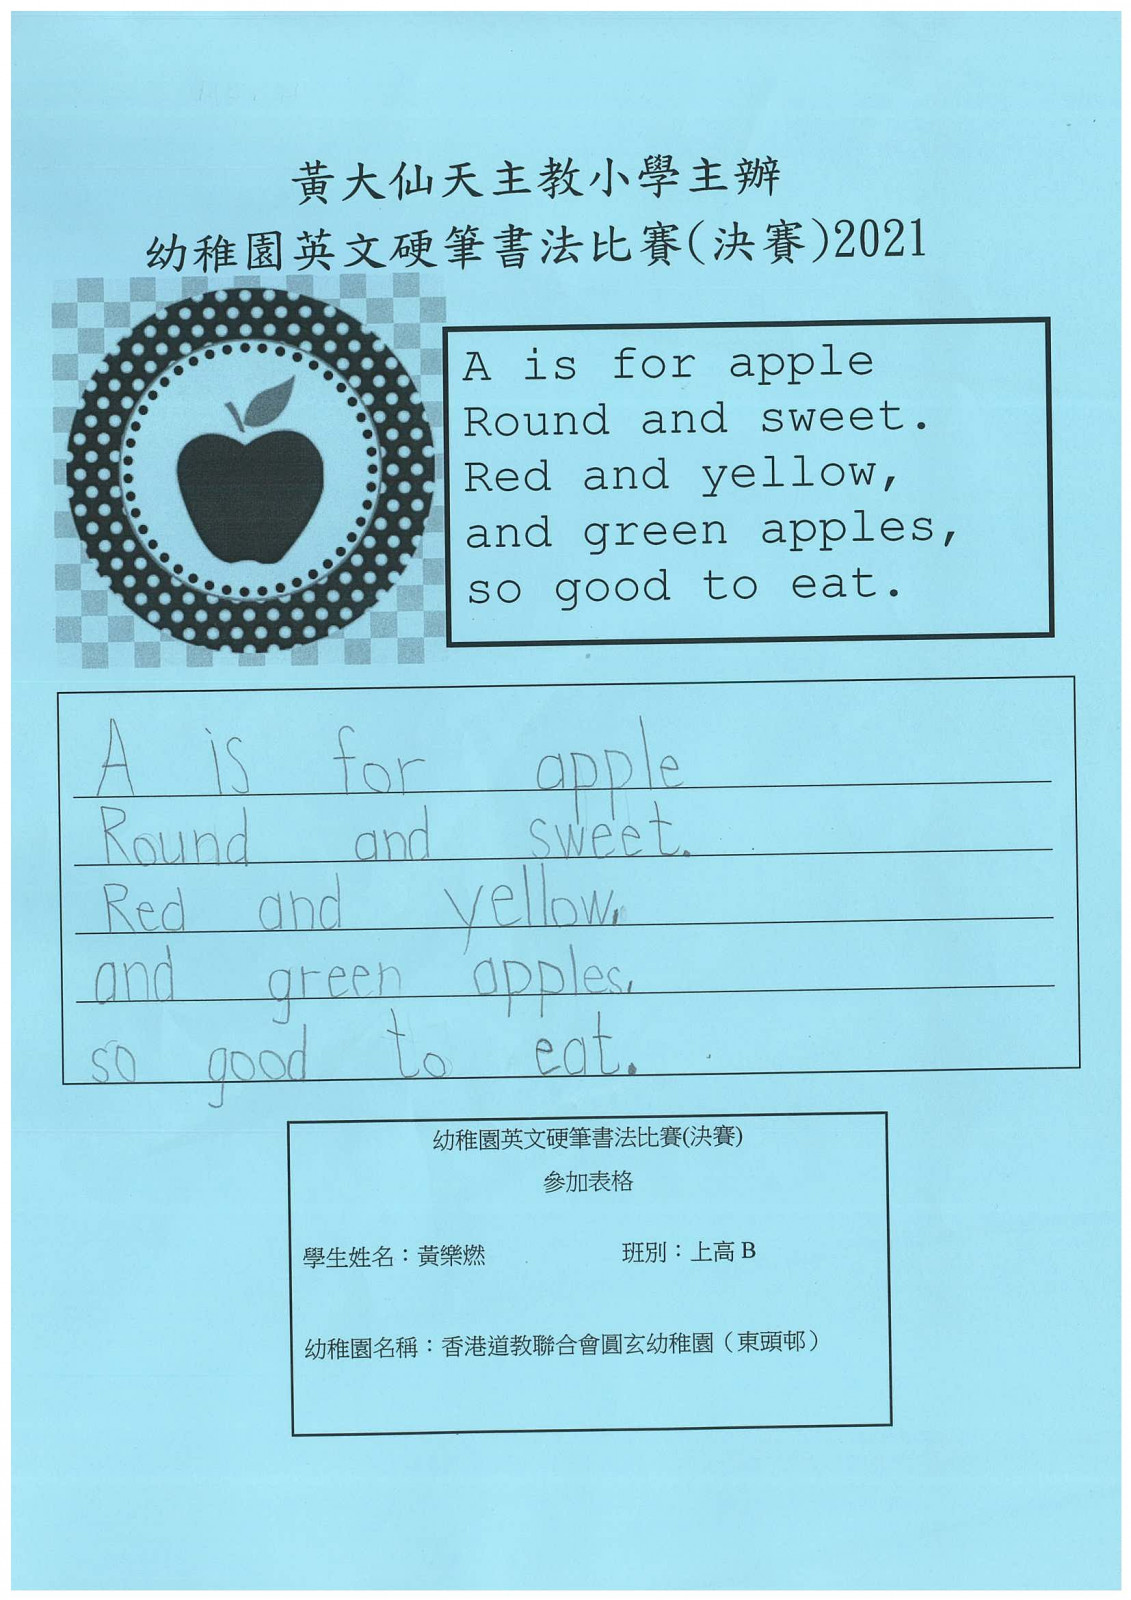 黃大仙天主教小學主辦
幼稚園英文硬筆書法比賽(決賽)2021
A is for apple
Round and sweet.
Red and yellow,
and green apples,
so good to eat.
A is for apple
Round and sweet.
Red and yellow,
and green apples,
so good to eat.
幼稚園英文硬筆書法比賽(決賽)
參加表格
學生姓名：黃樂燃 班別：上高 B
幼稚園名稱：香港道教聯合會圓玄幼稚園（東頭邨）